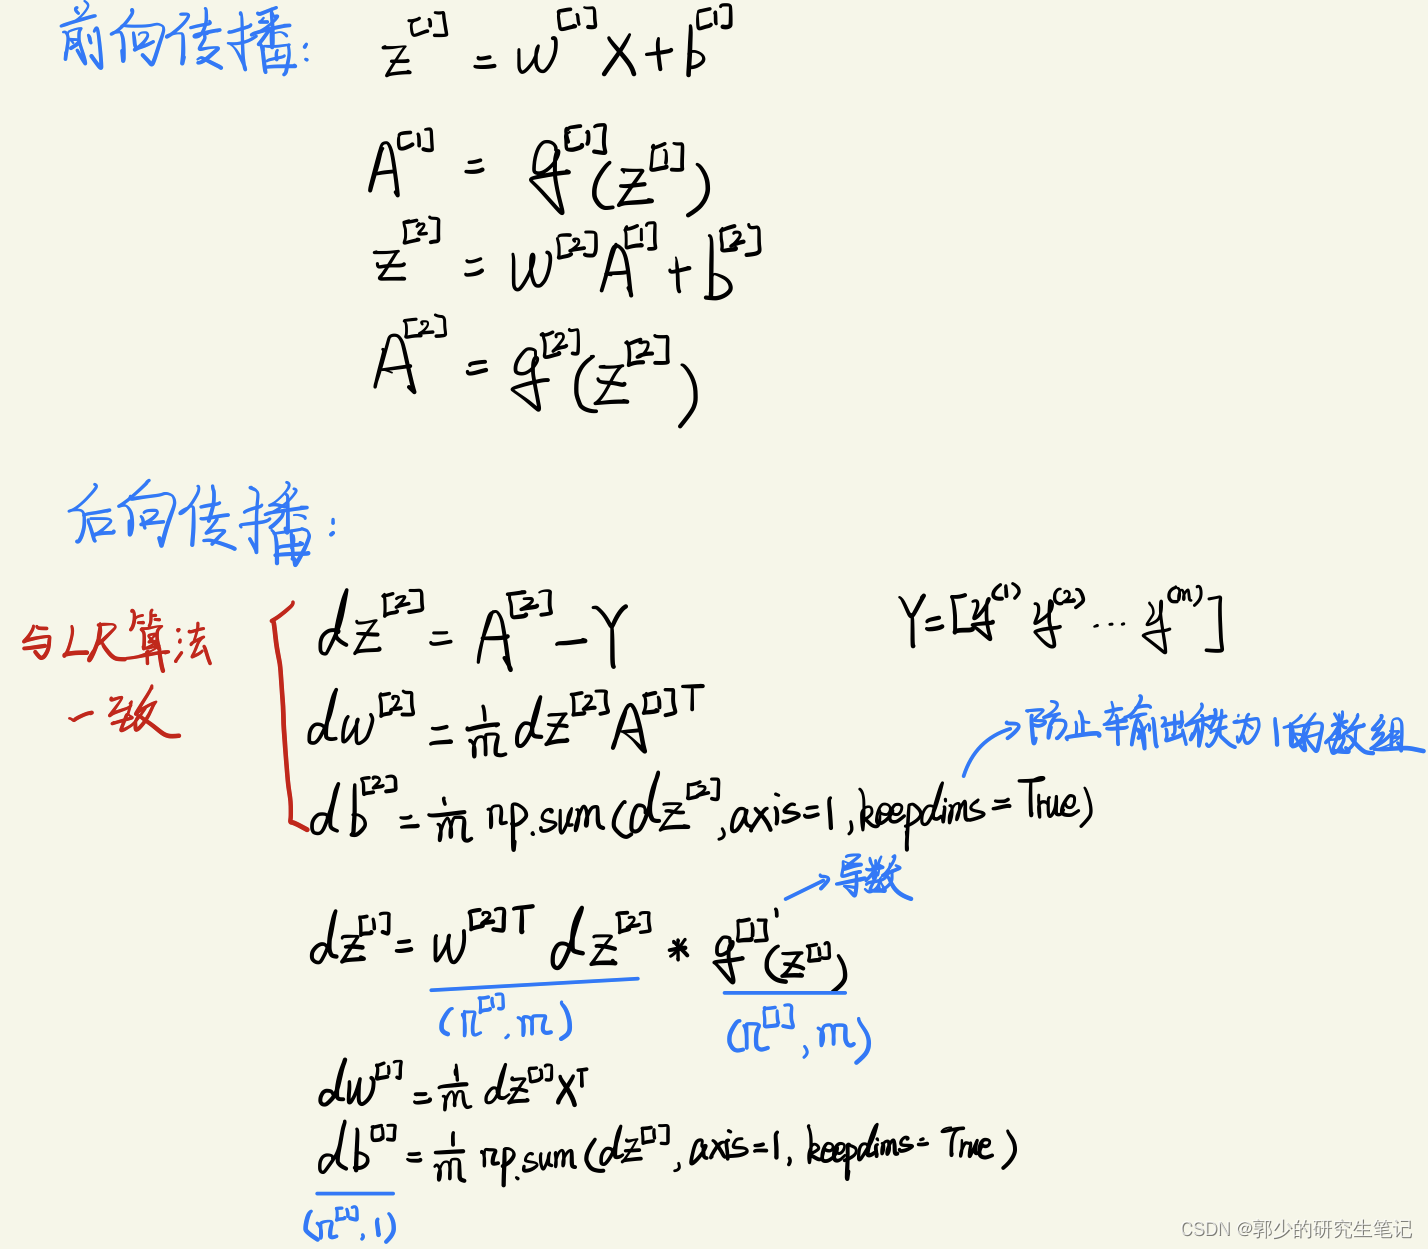 前向传播:
z^[1] = w^[1]X + b^[1]
A^[1] = g^[1](z^[1])
z^[2] = w^[2]A^[1] + b^[2]
A^[2] = g^[2](z^[2])
后向传播:
与LR算法一致
dz^[2] = A^[2] - Y
Y = [y^(1) y^(2) ... y^(m)]
dw^[2] = 1/m dz^[2] A^[1]T
防止输出秩为1的数组
db^[2] = 1/m np.sum(dz^[2], axis=1, keepdims=True)
导数
dz^[1] = w^[2]T dz^[2] * g^[1]'(z^[1])
(n^[1], m)
(n^[1], m)
dw^[1] = 1/m dz^[1] X^T
db^[1] = 1/m np.sum(dz^[1], axis=1, keepdims=True)
(n^[1], 1)
CSDN @郭少的研究生笔记